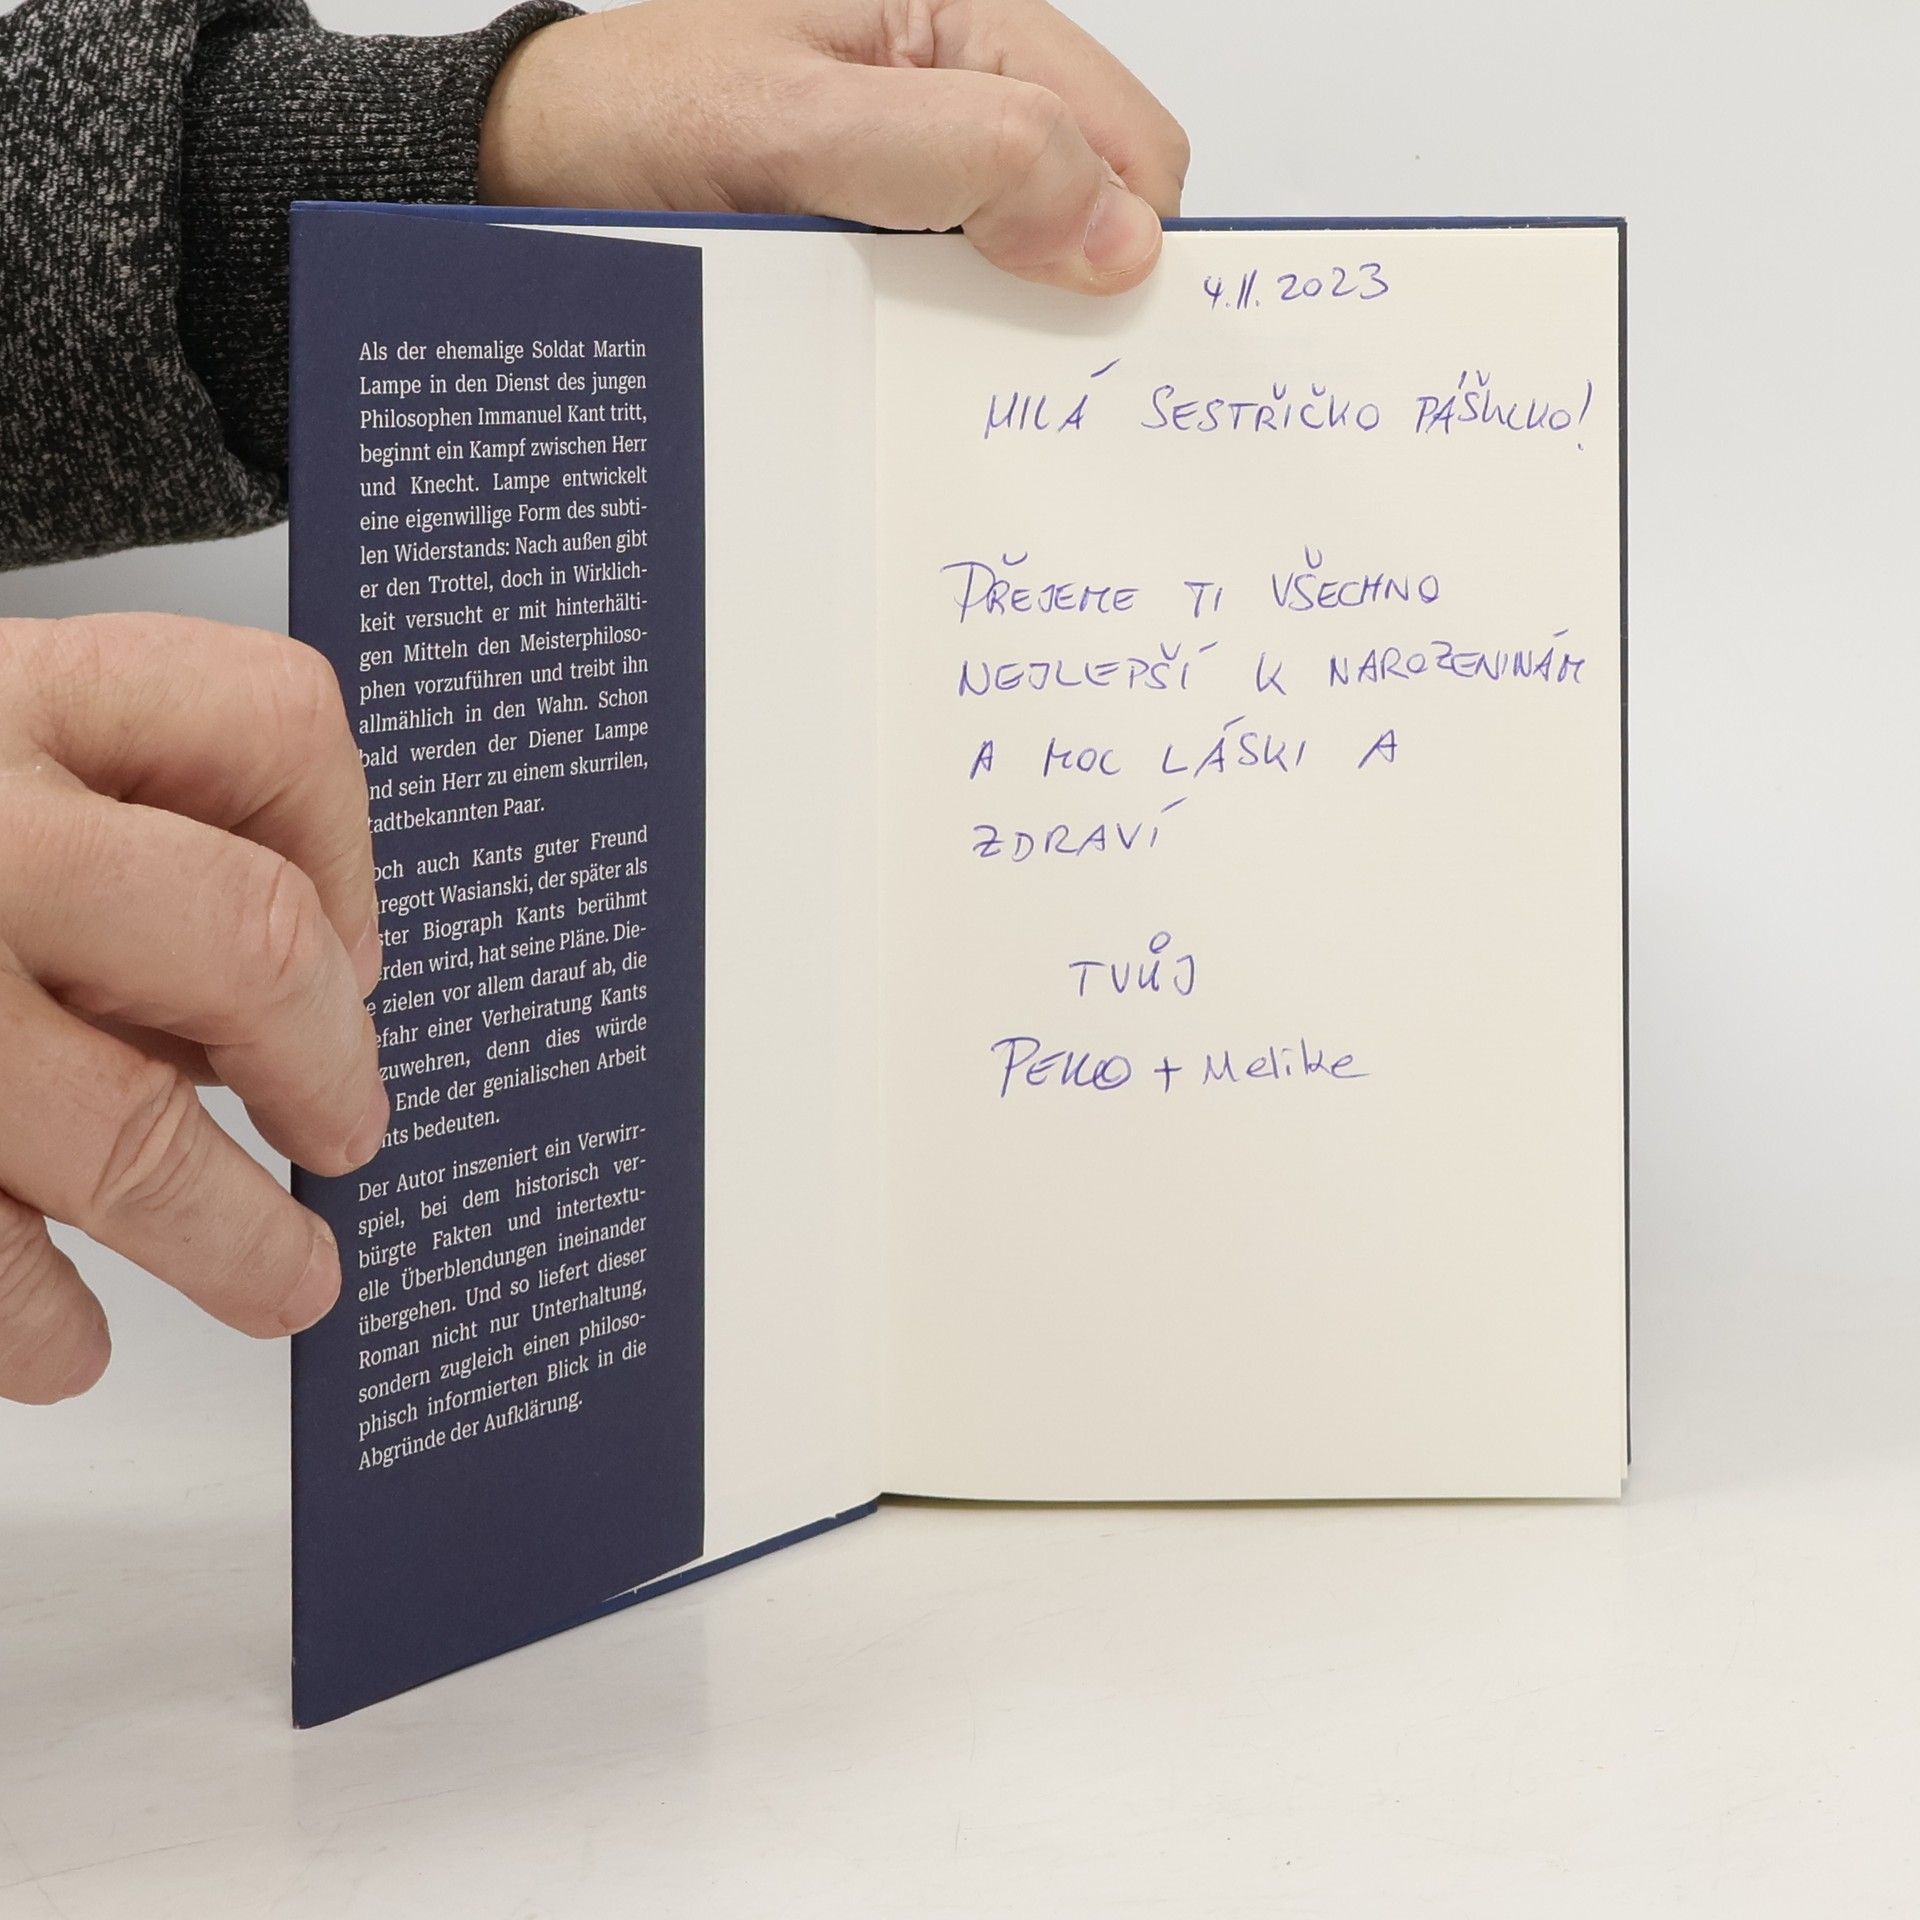 Als der ehemalige Soldat Martin
Lampe in den Dienst des jungen
Philosophen Immanuel Kant tritt,
beginnt ein Kampf zwischen Herr
und Knecht. Lampe entwickelt
eine eigenwillige Form des subti-
len Widerstands: Nach außen gibt
er den Trottel, doch in Wirklich-
keit versucht er mit hinterhälti-
gen Mitteln den Meisterphiloso-
phen vorzuführen und treibt ihn
allmählich in den Wahn. Schon
bald werden der Diener Lampe
nd sein Herr zu einem skurrilen,
tadtbekannten Paar.
och auch Kants guter Freund
regott Wasianski, der später als
ster Biograph Kants berühmt
rden wird, hat seine Pläne. Die-
e zielen vor allem darauf ab, die
efahr einer Verheiratung Kants
zuwehren, denn dies würde
Ende der genialischen Arbeit
nts bedeuten.
Der Autor inszeniert ein Verwirr-
spiel, bei dem historisch ver-
bürgte Fakten und intertextu-
elle Überblendungen ineinander
übergehen. Und so liefert dieser
Roman nicht nur Unterhaltung,
sondern zugleich einen philoso-
phisch informierten Blick in die
Abgründe der Aufklärung.
4.11.2023
MILÁ SESTŘIČKO
PŘEJEME TI VŠECHNO
NEJLEPŠÍ K NAROZENINÁM
A MOC LÁSKI A
ZDRAVÍ
TVŮJ
PEKO + Melike